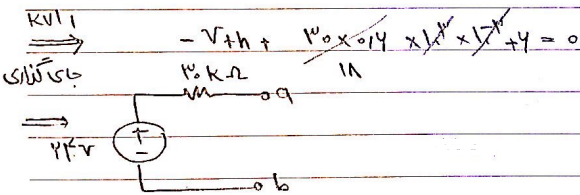 KVL 1
⇒ - V+h + ۳۰ × ۰٫۶ × ۱۰^۳ × ۱۰^-۳ + ۶ = ۰
جای گذاری ۱۸
۳۰ kΩ
a
⇒ +
۲۴ v -
b